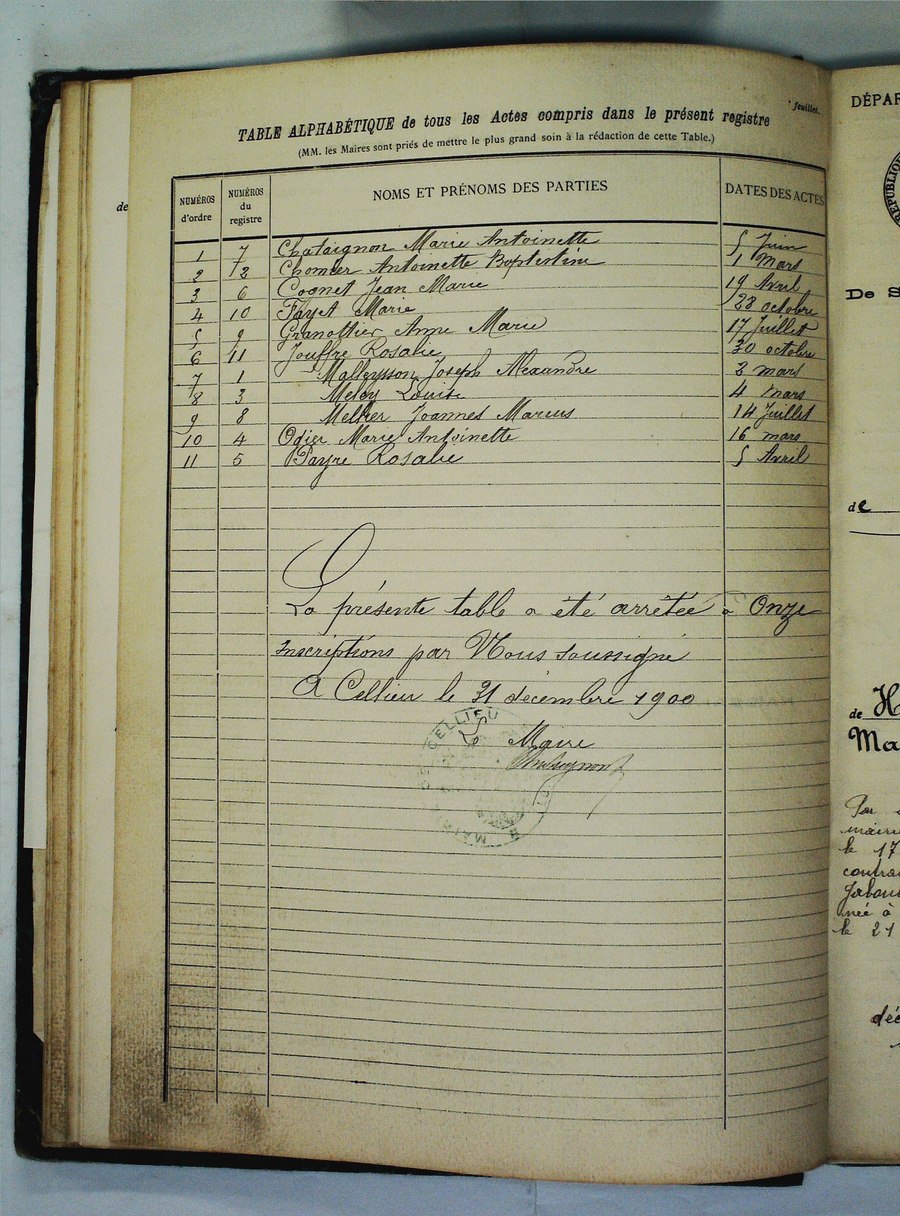 feuillet.
TABLE ALPHABÉTIQUE de tous les Actes compris dans le présent registre
(MM. les Maires sont priés de mettre le plus grand soin à la rédaction de cette Table.)
NUMÉROS d'ordre NUMÉROS du registre NOMS ET PRÉNOMS DES PARTIES DATES DES ACTES
1 7 Chataignon Marie Antoinette 5 Juin
2 2 Chomier Antoinette Baptistine 1 Mars
3 6 Cognet Jean Marie 19 Avril
4 10 Fayet Marie 28 octobre
5 9 Granottier Anne Marie 17 Juillet
6 11 Jouffre Rosalie 30 octobre
7 1 Malleysson Joseph Alexandre 2 mars
8 3 Louise 4 mars
9 8 Mellier Joannes Marcus 14 Juillet
10 4 Odier Marie Antoinette 16 mars
11 5 Payre Rosalie 5 Avril
La présente table a été arrêtée à Onze
inscriptions par Nous soussigné
A Cellieu le 31 décembre 1900
Le Maire
CELLIEU
de
DÉPAR
De S
de
de H
Ma
Par
mairie
le 17
contra
née à
le 21
déc